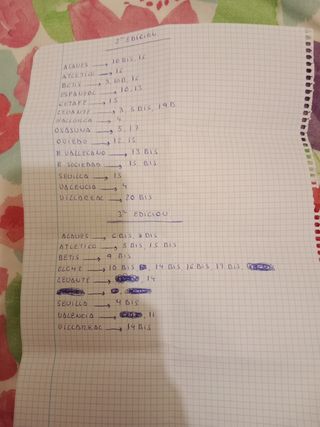 2ª EDICION
ALAVES → 10 BIS, 16
ATLETICO → 16
BETIS → 3, 10B, 16
ESPAÑOL → 10, 13
GETAFE → 15
LEVANTE → 3, 5 BIS, 19 B
MALLORCA → 4
OSASUNA → 5, 17
OVIEDO → 12, 15
R VALLECANO → 13 BIS
R SOCIEDAD → 15 BIS
SEVILLA → 13
VALENCIA → 4
VILLAREAL → 20 BIS
3ª EDICION
ALAVES → 6 BIS, 8 BIS
ATLETICO → 8 BIS, 15 BIS
BETIS → 9 BIS
ELCHE → 10 BIS, 14 BIS 16 BIS, 17 BIS
LEVANTE → 14
SEVILLA → 4 BIS
VALENCIA → 11
VILLAREAL → 14 BIS